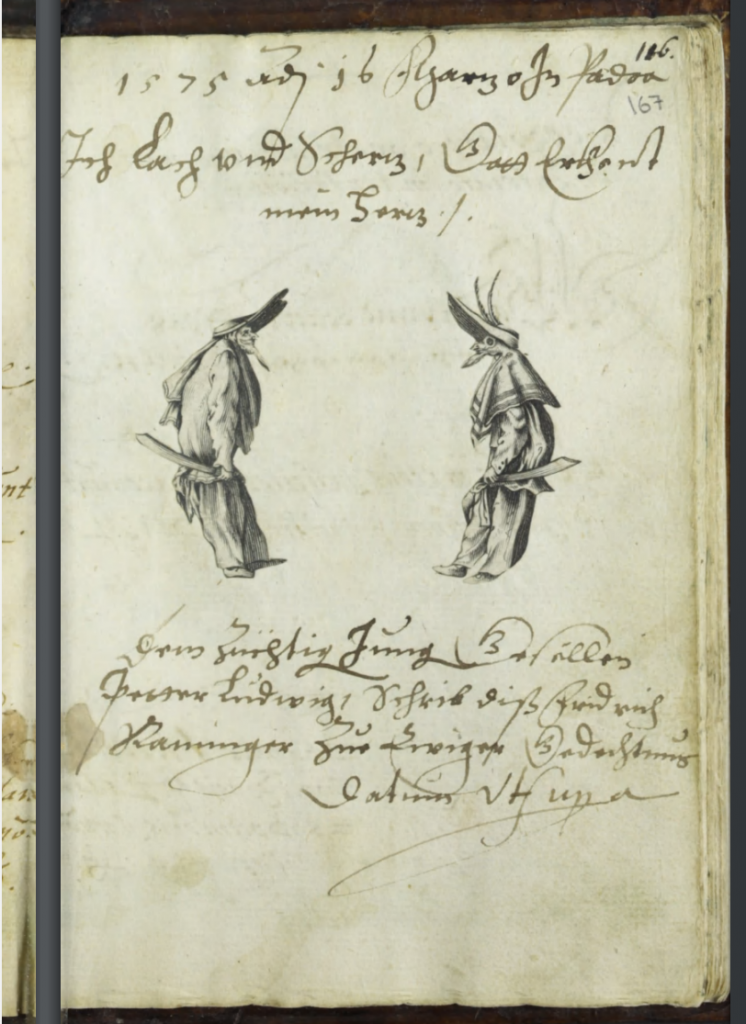 116.
1575 adj 16 Marzo In Padoa
167
Ich Lach vnd Schertz, Gott Erkent
mein Hertz /.
Dem Züchtig Jung Gesellen
Petter Ludwig, Schrib diß Fridrich
Raminger Zue Ewiger Gedechtnus
Datum Vt supra